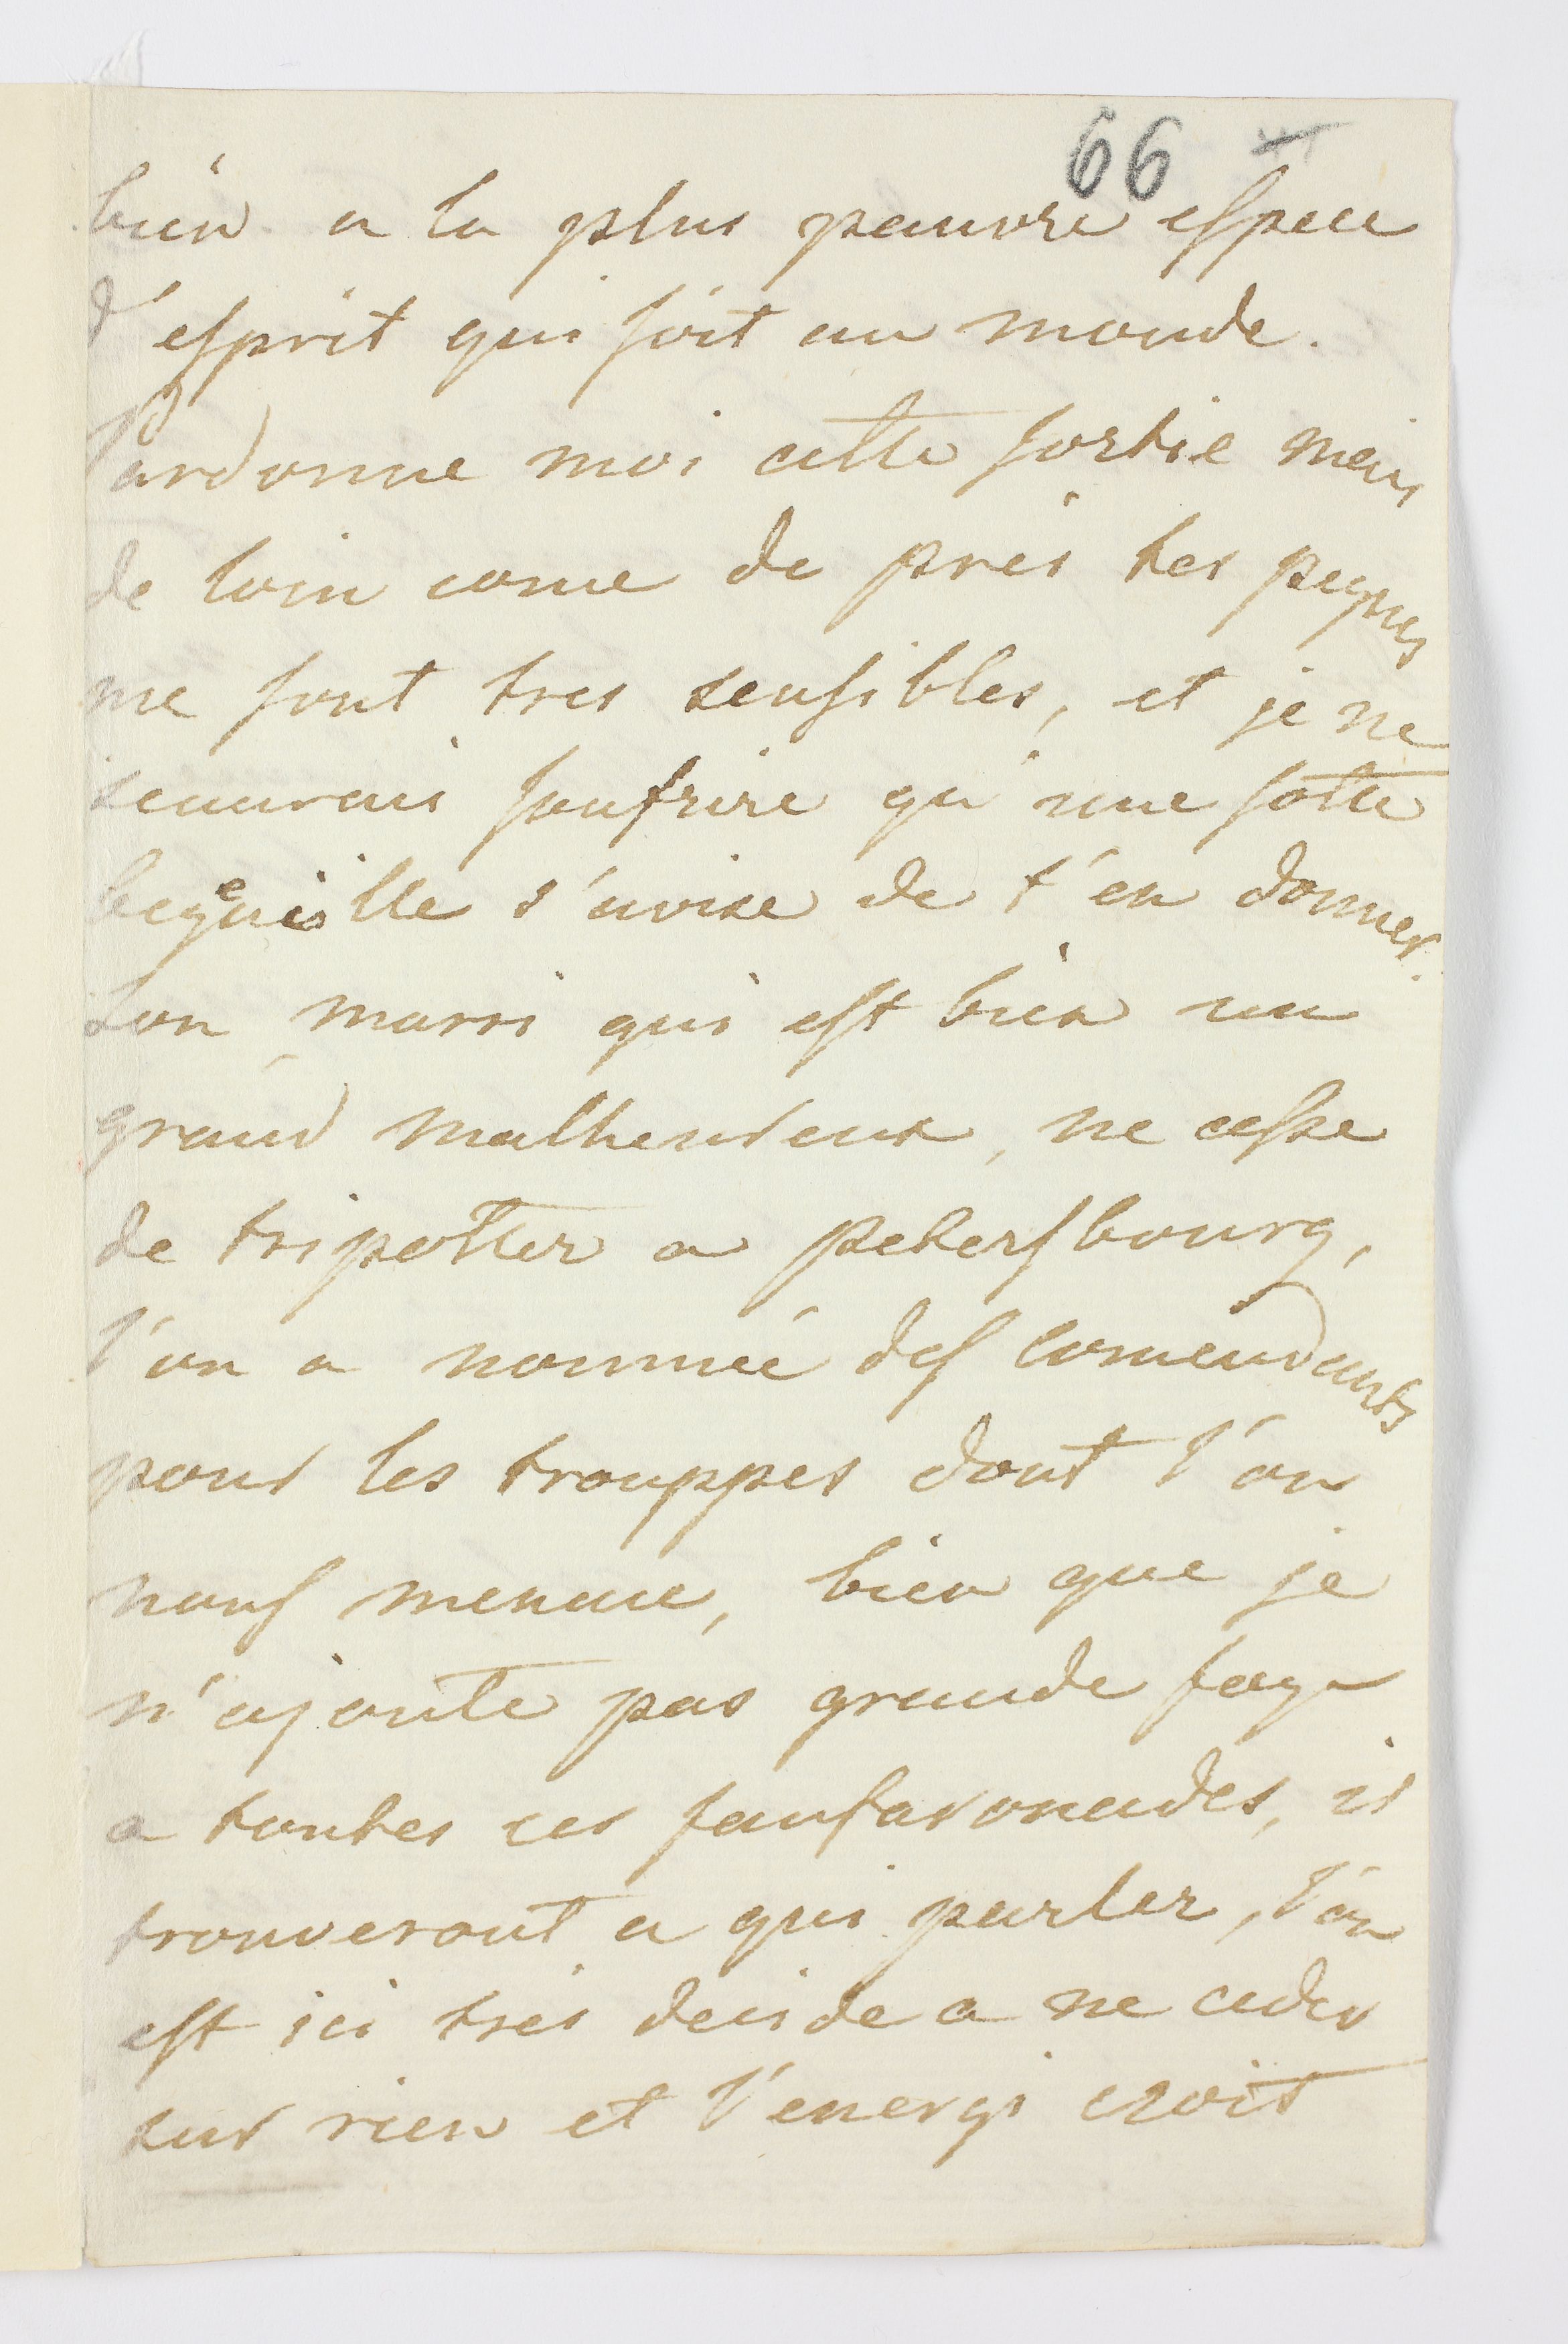 66
bien a la plus pauvre espece
d'esprit qui soit au monde.
Pardonne moi cette sortie mais
de loin come de près tes peynes
me sont tres sensibles, et je ne
scaurais soufrire qu'une sotte
begueille s'avise de t'en donner.
son marri qui est bien un
grand malheureux, ne cesse
de tripotter a petersbourg,
l'on a nommé des comendants
pour les trouppes dont l'on
nous menace, bien que je
n'ajoute pas grande foye
a toutes ces fanfaronades, is
trouveront a qui parler, l'on
est ici très decide a ne ceder
sur rien et l'energi croit